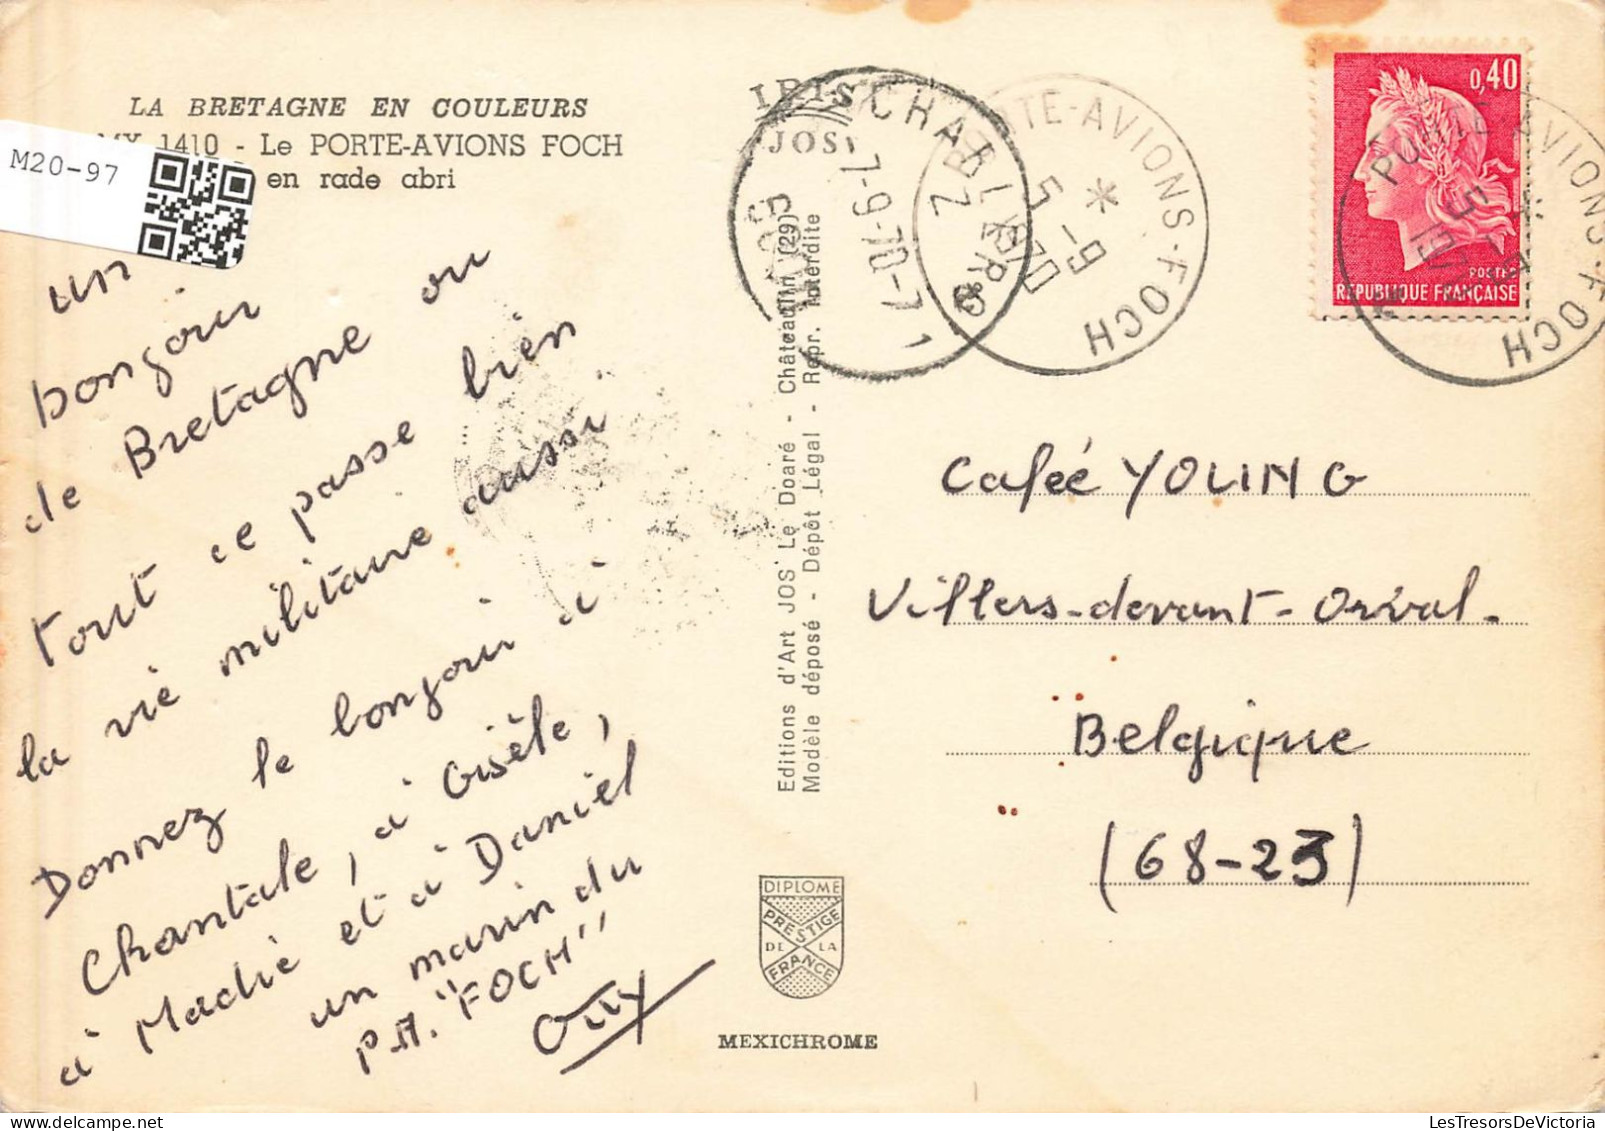 LA BRETAGNE EN COULEURS
MX 1410 - Le PORTE-AVIONS FOCH
en rade abri
M20-97
un
bonjour
de Bretagne ou
tout ce passe bien
la vie militaire aussi
Donnez le bonjour à
Chantale, à Gisèle,
à Madie et à Daniel
un marin du
P.A. "FOCH"
Guy
IRIS
JOS
Editions d'Art JOS Le Doaré - Châteaulin (29)
Modèle déposé - Dépôt Légal - Repr. Interdite
7-9-70-7
PORTE-AVIONS-FOCH
5-9
1970
0,40
POSTES
REPUBLIQUE FRANÇAISE
PORTE-AVIONS-FOCH
Caféé YOUNG
Villers-devant-Orval.
Belgique
(68-23)
DIPLOME
PRESTIGE
DE LA
FRANCE
MEXICHROME
LesTresorsDeVictoria